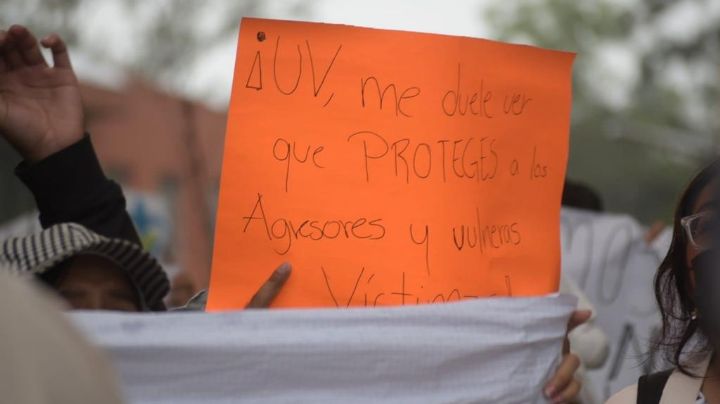 ¡UV, me duele ver
que PROTEGES a los
Agresores y vulneras
Víctimas!